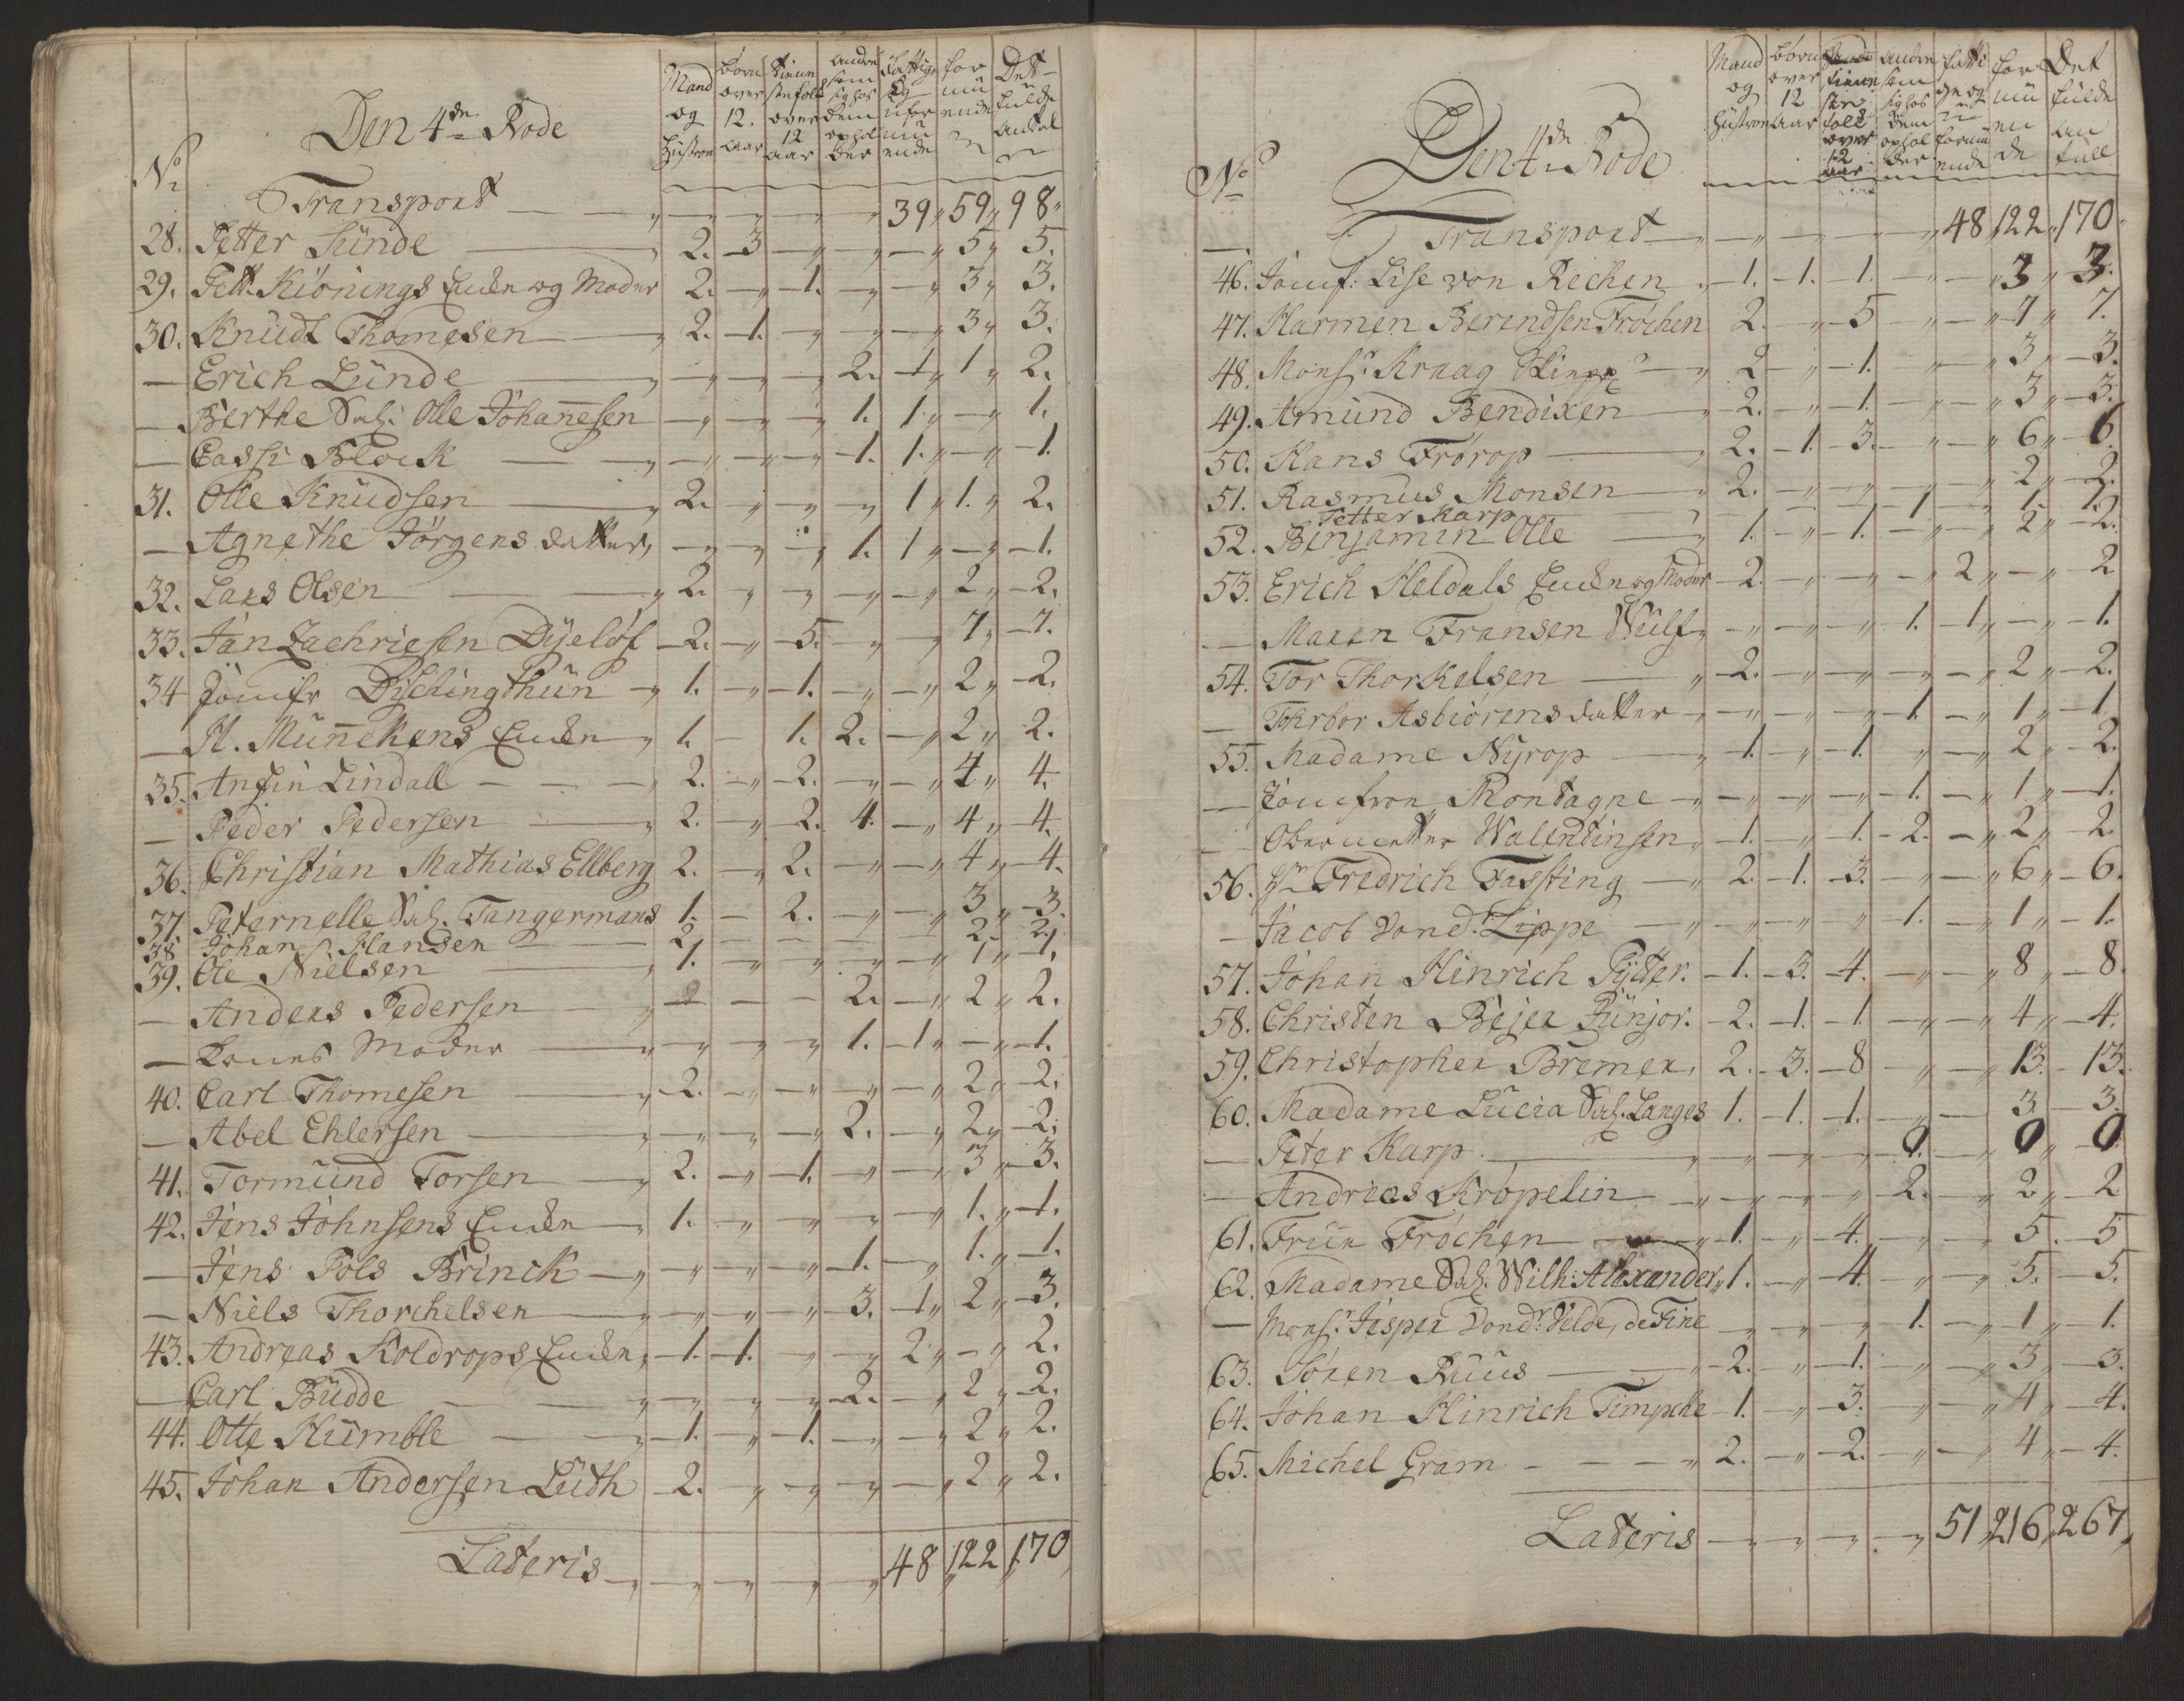 Den 4de Rode
No
Mand og Hustroe
børn over 12. aar
tienestefolk over 12 aar
andre som sig hos dem opholder
fattige og uformuende
formuende
Det fulde antal
Transport — 39 „ 59 „ 98 „
28. Petter Sünde — 2. 3 — 5 „ 5.
29. Pett. Kiønings Encke og Moder 2. — 1. — 3 „ 3.
30. Knüdt Thomesen — 2. 1. — 3 „ 3.
— Erich Lünde — 2. 1 „ 1 „ 2.
— Berthe Sal: Olle Johannesen — 1. 1 „ — 1.
— Block — 1. 1. — 1.
31. Olle Knüdsen — 2. — 1 „ 1. „ 2.
— Agnethe Jörgens datter, — 1. 1 „ — 1.
32. Lars Olsen — 2. — 2 „ 2.
33. Jan Zachriesen Dyeløf — 2. — 5. — 7 „ 7.
34 Jomfr Dychingthün — 1. — 1. — 2 „ 2.
— H. Münnekens Encke — 1. — 1. 2. — 2 „ 2.
35. Anfin Lindall — 2. — 2. — 4 „ 4.
— Peder Pedersen — 2. — 2. 4. — 4 „ 4.
36. Christian Mathias Ellberg 2. — 2. — 4 „ 4.
37. Peternelle Sal. Tangermans 1. — 2. — 3 „ 3.
38 Johan Hansen — 2 — 2 „ 2.
39. Ole Nielsen — 1. — 1 „ 1.
— Anders Pedersen — 2. — 2 „ 2.
— Moder — 1. 1 „ — 1.
40. Carl Thomesen — 2. — 2 „ 2.
— Abel Ehlersen — 2. — 2 „ 2.
41. Tormünd Torsen — 2. — 1. — 3 „ 3.
42. Jens Johnsens Encke — 1. — 1. „ 1.
— Jens Pols Brinck — 1. — 1. „ 1.
— Niels Thorchelsen — 3. 1 „ 2 „ 3.
43. Andreas Koldrops Encke, 1. 1. — 2 „ — 2.
— Carl Büdde — 2. — 2 „ 2.
44. Otte Hümble — 1. — 1. — 2 „ 2.
45. Johan Andersen Lüth — 2. — 2 „ 2.
Lateris — 48 „ 122 „ 170
Den 4de Rode
No
Mand og Hustroe
børn over 12 aar
tienestefolk over 12 aar
andre som sig hos dem opholder
fattige og uformuende
formuende
Det fulde antall
Transport — 48 „ 122 „ 170.
46. Jomf: Lise von Rechen — 1. 1. 1. — 3 „ 3.
47. Harmen Berendsen Frochen 2. — 5 — 7 „ 7.
48. Monsr. Kraag — 2 — 1. — 3 „ 3.
49. Amünd Bendixen — 2. — 1. — 3 „ 3.
50. Hans Frorop — 2. 1. 3. — 6 „ 6.
51. Rasmus Monsen — 2. — 2 „ 2.
Petter Karp — 1 — 1. 1.
52. Benjamin Olle — 1. — 1. — 2 „ 2.
53. Erich Heldals Encke og Moder — 2. — 2 „ — 2
— Maren Fransen Wülf — 1. 1 „ — 1.
54. Tor Thorkelsen — 2. — 2 „ 2.
— Thrbor Asbiørens datter — 1. — 1 „ 1.
55. Madame Nyrop — 1. — 1. — 2 „ 2.
— Jomfroe Montagne — 1. — 1 „ 1.
— Walentinsen — 1. — 1. 2. — 2 „ 2
56. Hr Fredrich Fassting — 2. 1. 3. — 6 „ 6.
— Jacob Vond. Lippe — 1. — 1 „ 1.
57. Johan Hinrich Pytter. — 1. 3. 4. — 8 „ 8.
58. Christen Bejer Junjor. — 2. 1. 1. — 4 „ 4.
59. Christopher Bremer, 2. 3. 8 — 13. 13.
60. Madame Lucia Sal. Langes 1. 1. 1. — 3 3.
— Peter Karp. — 0. — 0 „ 0
— Andreas Kröpelin — 2. — 2 „ 2
61. Frue Frochen — 1. — 4. — 5. 5
62. Madame Sal. Wilh: Alexander „ 1. — 4. — 5. 5.
— Monsr. Jesper Vondr. Velde, de Fine — 1. — 1 „ 1.
63. Søren Ruus — 2. — 1. — 3 „ 3.
64. Johan Hinrich Timpche — 1. — 3. — 4 „ 4.
65. Michel Gram — 2. — 2. — 4 „ 4.
Lateris — 51 „ 216 „ 267 „